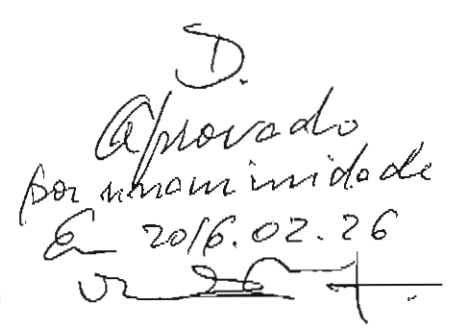 D.
Aprovado
por unanimidade
Em 2016.02.26